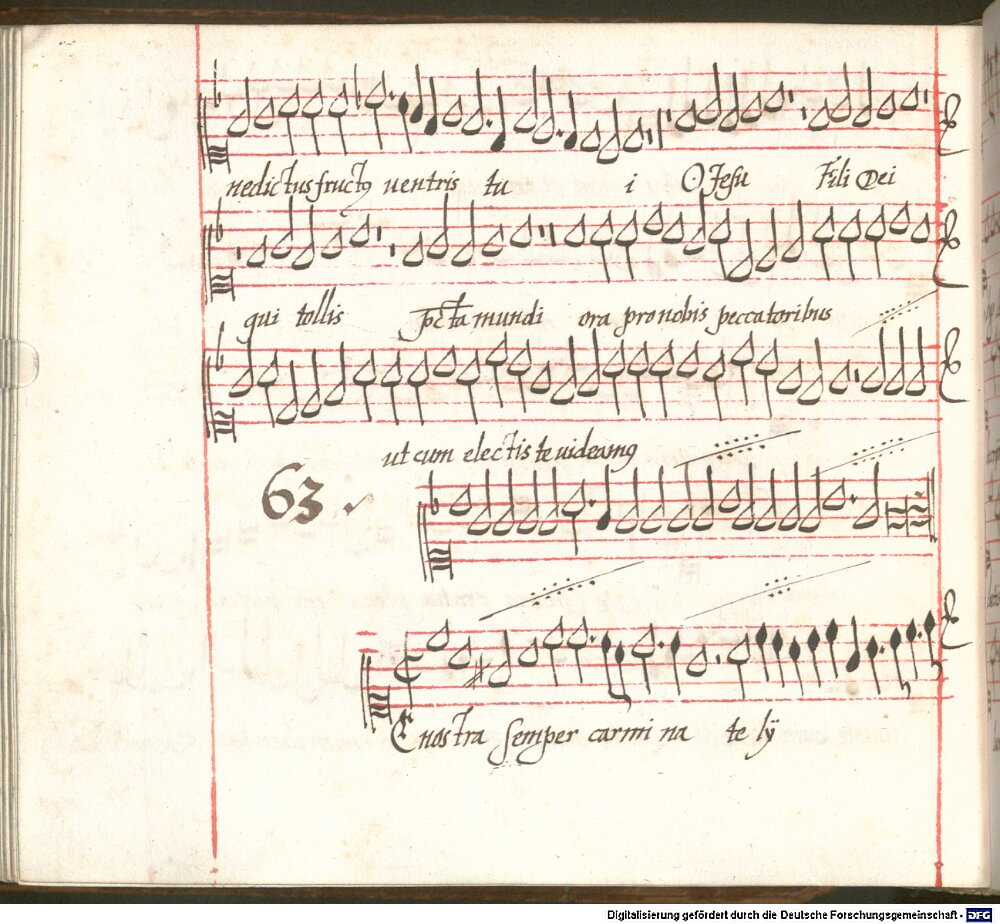 nedictus fructꝰ uentris tu i O Jesu Fili Dei
qui tollis pc̄ta mundi ora pro nobis peccatoribus
ut cum electis te uideamꝰ
63
E nostra semper carmi na te lÿ
Digitalisierung gefördert durch die Deutsche Forschungsgemeinschaft - DFG